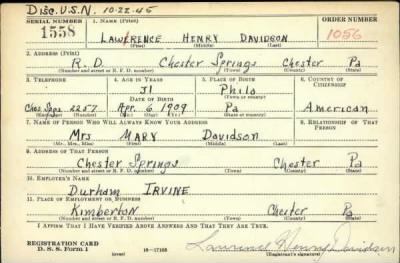 Disc. U.S.N. 10-22-45
SERIAL NUMBER 1. NAME (Print) ORDER NUMBER
1558 LAWRENCE HENRY DAVIDSON 1056
(First) (Middle) (Last)
2. ADDRESS (Print)
R.D. Chester Springs Chester Pa
(Number and street or R. F. D. number) (Town) (County) (State)
3. TELEPHONE 4. AGE IN YEARS 5. PLACE OF BIRTH 6. COUNTRY OF CITIZENSHIP
31 Phila
DATE OF BIRTH (Town or county)
Ches Spgs 2257 Apr. 6 1909 Pa American
(Exchange) (Number) (Mo.) (Day) (Yr.) (State or country)
7. NAME OF PERSON WHO WILL ALWAYS KNOW YOUR ADDRESS 8. RELATIONSHIP OF THAT PERSON
Mrs MARY Davidson
(Mr., Mrs., Miss) (First) (Middle) (Last)
9. ADDRESS OF THAT PERSON
Chester Springs Chester Pa
(Number and street or R. F. D. number) (Town) (County) (State)
10. EMPLOYER'S NAME
Durham IRVINE
11. PLACE OF EMPLOYMENT OR BUSINESS
Kimberton Chester Pa
(Number and street or R. F. D. number) (Town) (County) (State)
I AFFIRM THAT I HAVE VERIFIED ABOVE ANSWERS AND THAT THEY ARE TRUE.
REGISTRATION CARD
D. S. S. Form 1 16-17105 Lawrence Henry Davidson
(over) (Registrant's signature)